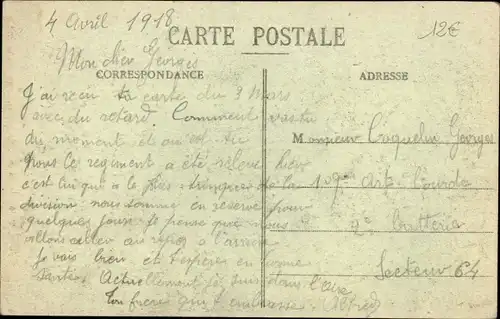 4 Avril 1918
12€
CARTE POSTALE
Mon cher Georges
CORRESPONDANCE
ADRESSE
J'ai reçu ta carte du 3 Mars
avec du retard. Comment vas tu
du moment et où es tu
Nous le regiment a été relevé hier
c'est lui qui a le plus de la
division nous sommes en réserve pour
quelques jours je pense que nous
allons aller au repos a l'arrière
Je vais bien et espère en bonne
Santé. Actuellement je suis dans l'Oise
Ton frère qui t'embrasse (Alfred)
Monsieur Coquelin Georges
109e Art. Lourde
9e batterie
Secteur 64